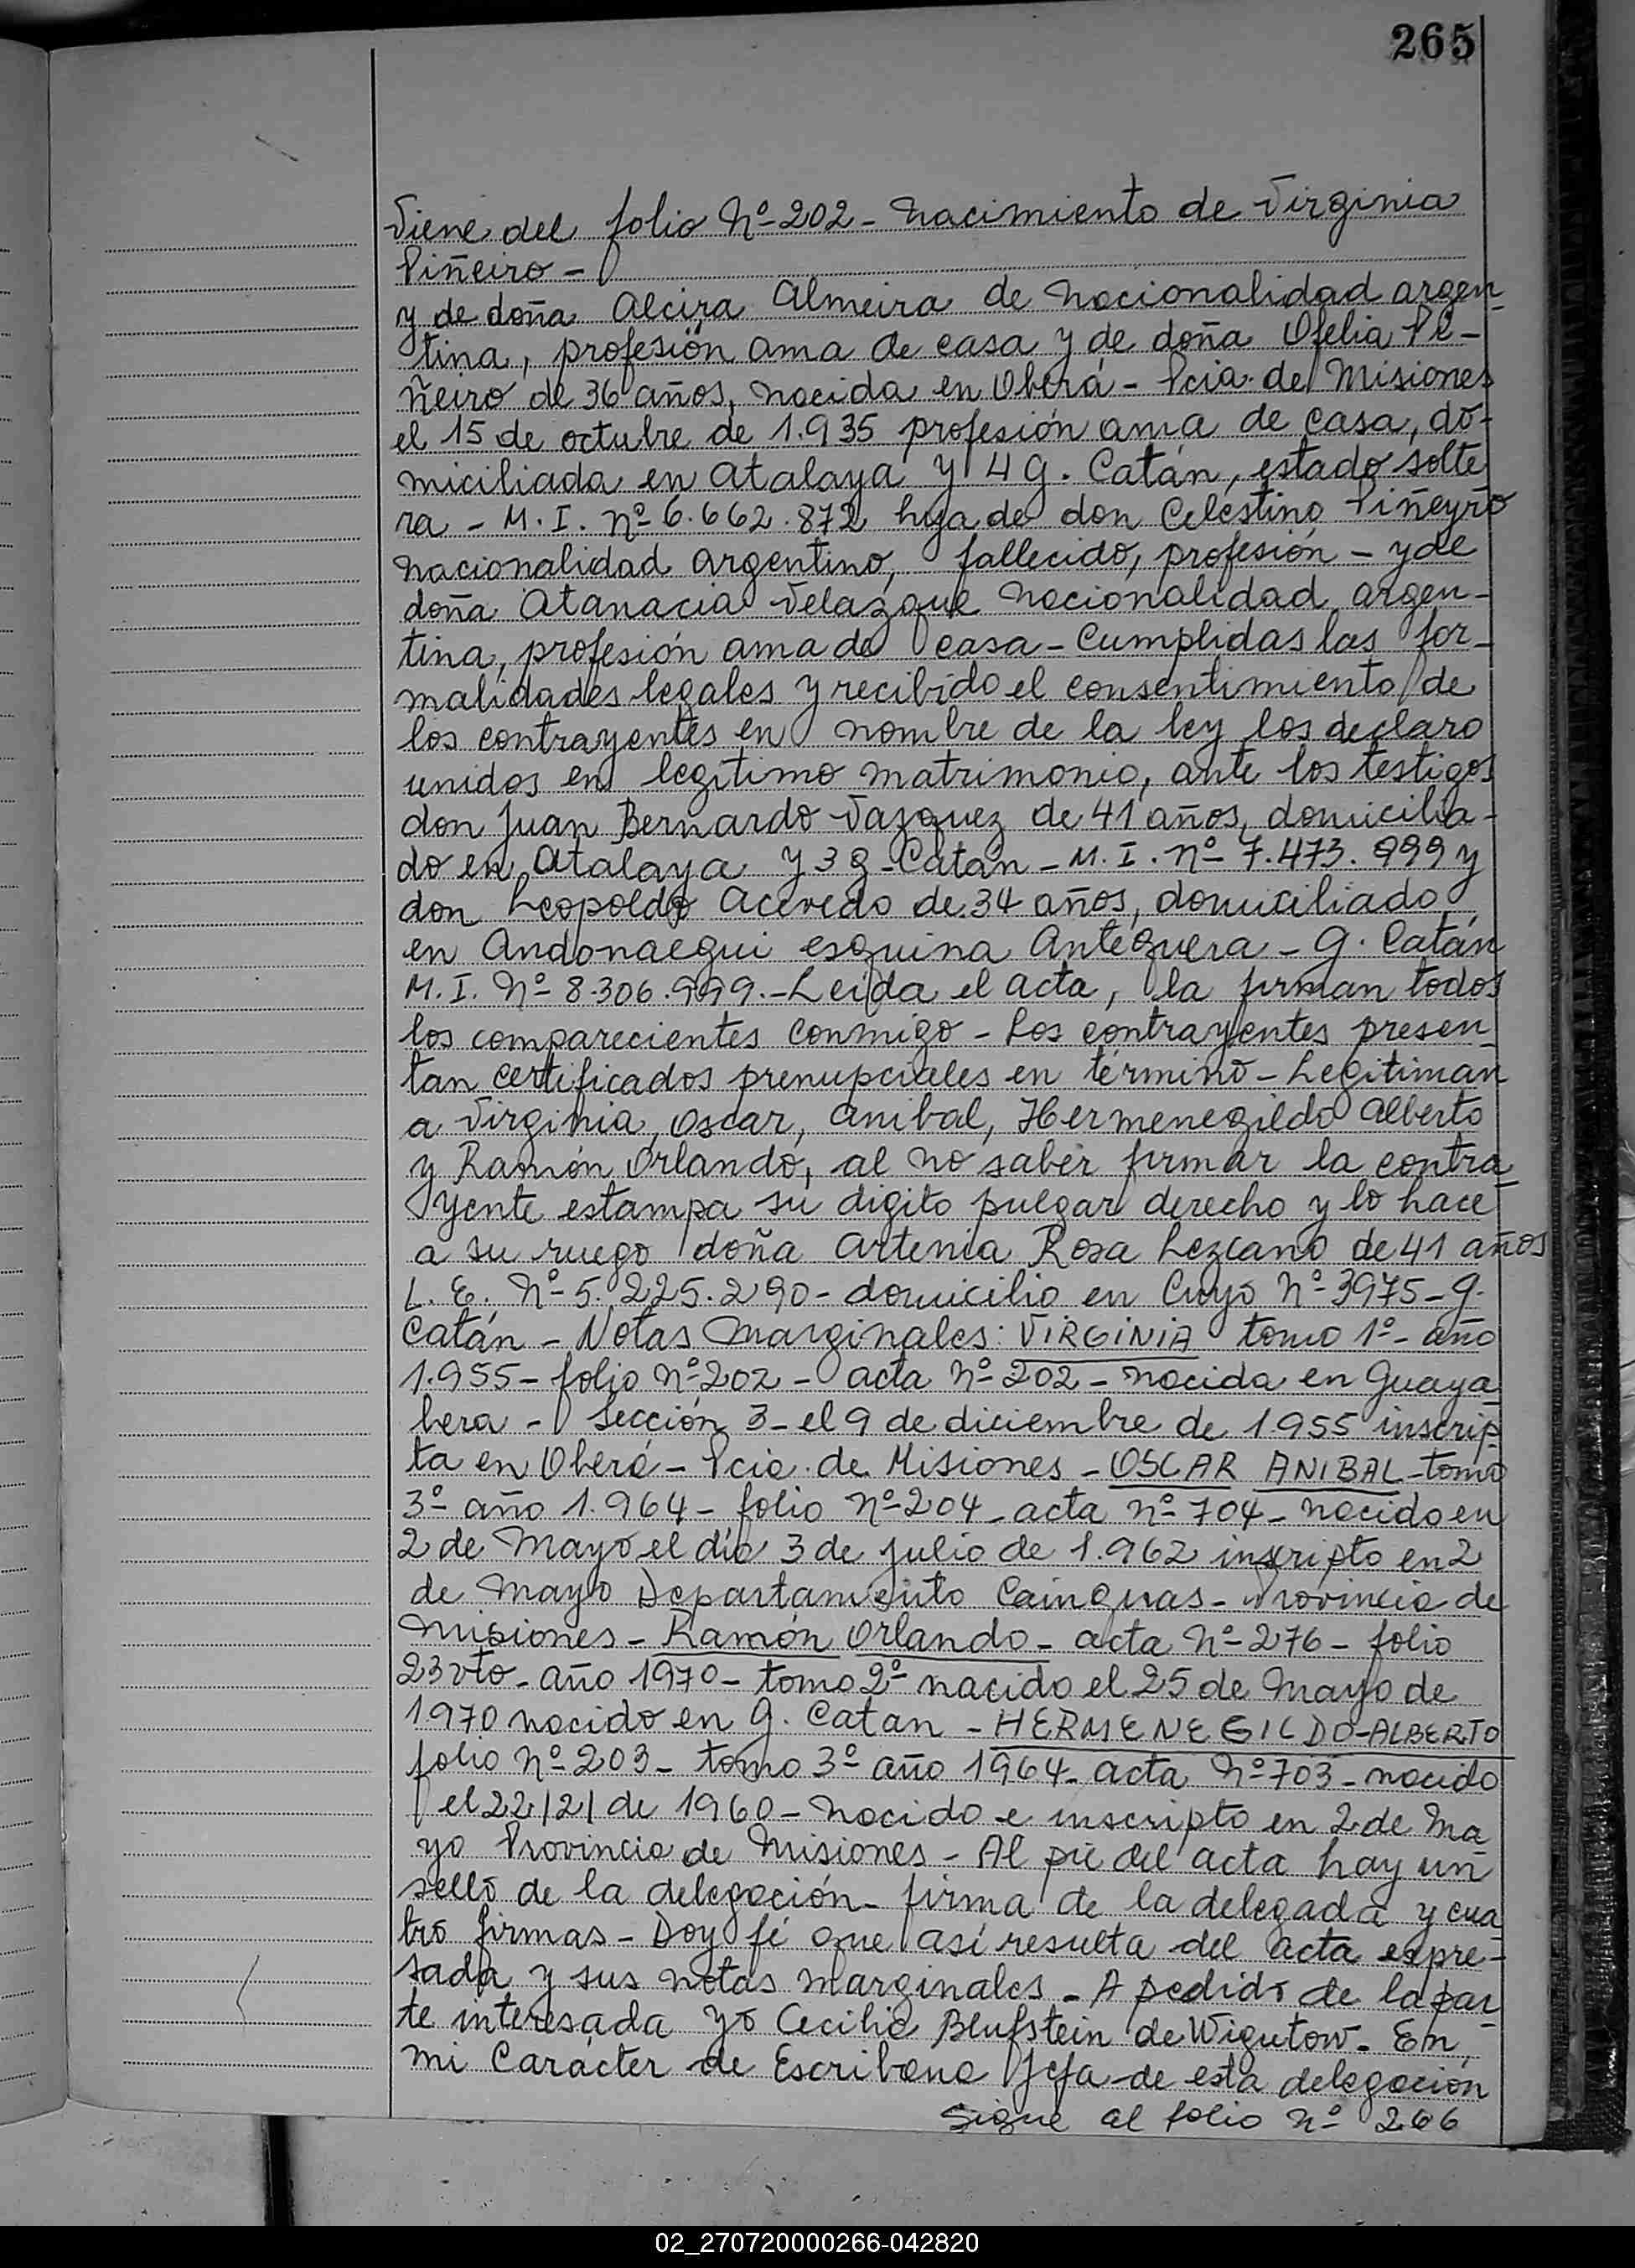 265
Viene del folio Nº 202 - Nacimiento de Virginia
Piñeiro -
y de doña Alcira Almeira de nacionalidad argen-
tina, profesión ama de casa y de doña Ofelia Pi-
ñeiro de 36 años, nacida en Oberá - Pcia. de Misiones
el 15 de octubre de 1.935 profesión ama de casa, do-
miciliada en Atalaya y 4 G. Catán, estado solte
ra - M. I. Nº 6.662.872 hija de don Celestino Piñeyro
nacionalidad argentino, fallecido, profesión - y de
doña Atanacia Velazque nacionalidad argen-
tina, profesión ama de casa - Cumplidas las for-
malidades legales y recibido el consentimiento de
los contrayentes en nombre de la ley los declaro
unidos en legítimo matrimonio, ante los testigos
don Juan Bernardo Vazquez de 41 años, domicilia-
do en Atalaya y 3 G. Catán - M. I. Nº 7.473.999 y
don Leopoldo Acevedo de 34 años, domiciliado
en Andonaegui esquina Antequera - G. Catán
M. I. Nº 8.306.999. - Leida el acta, la firman todos
los comparecientes conmigo - Los contrayentes presen-
tan certificados prenupciales en término - Legitiman
a Virginia, Oscar, Anibal, Hermenegildo Alberto
y Ramón Orlando, al no saber firmar la contra-
yente estampa su digito pulgar derecho y lo hace
a su ruego doña Artemia Rosa Lezcano de 41 años
L. E. Nº 5.225.290 - domicilio en Cuyo Nº 3975 - G.
Catán - Notas Marginales: VIRGINIA tomo 1º - año
1.955 - folio Nº 202 - acta Nº 202 - nacida en Guaya
bera - Sección 3 - el 9 de diciembre de 1.955 inscrip-
ta en Oberá - Pcia. de Misiones - OSCAR ANIBAL - tomo
3º año 1.964 - folio Nº 204 - acta Nº 704 - nacido en
2 de Mayo el día 3 de julio de 1.962 inscripto en 2
de Mayo Departamento Cainguas - Provincia de
Misiones - Ramón Orlando - acta Nº 276 - folio
23 vto - año 1970 - tomo 2º nacido el 25 de Mayo de
1970 nacido en G. Catan - HERMENEGILDO-ALBERTO
folio Nº 203 - tomo 3º año 1964 - acta Nº 703 - nacido
el 22/2/ de 1960 - nacido e inscripto en 2 de Ma
yo Provincia de Misiones - Al pie del acta hay un
sello de la delegación - firma de la delegada y cua
tro firmas - Doy fé que así resulta del acta expre-
sada y sus notas marginales - A pedido de la par-
te interesada yo Cecilia Blufstein de Wigutow - En
mi Carácter de Escribana Jefa de esta delegación
Sigue al folio Nº 266
02_270720000266-042820